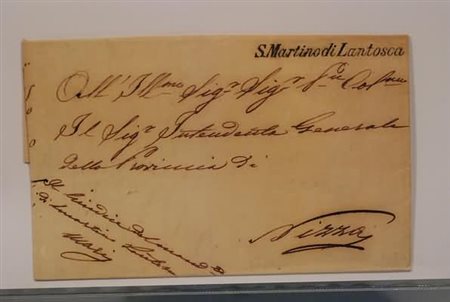 S. Martino di Lantosca
All' Ill.mo Sig.r Sig.r
Il Sig.r Intendente Generale
della Provincia di
Nizza
Il Sindaco del
di